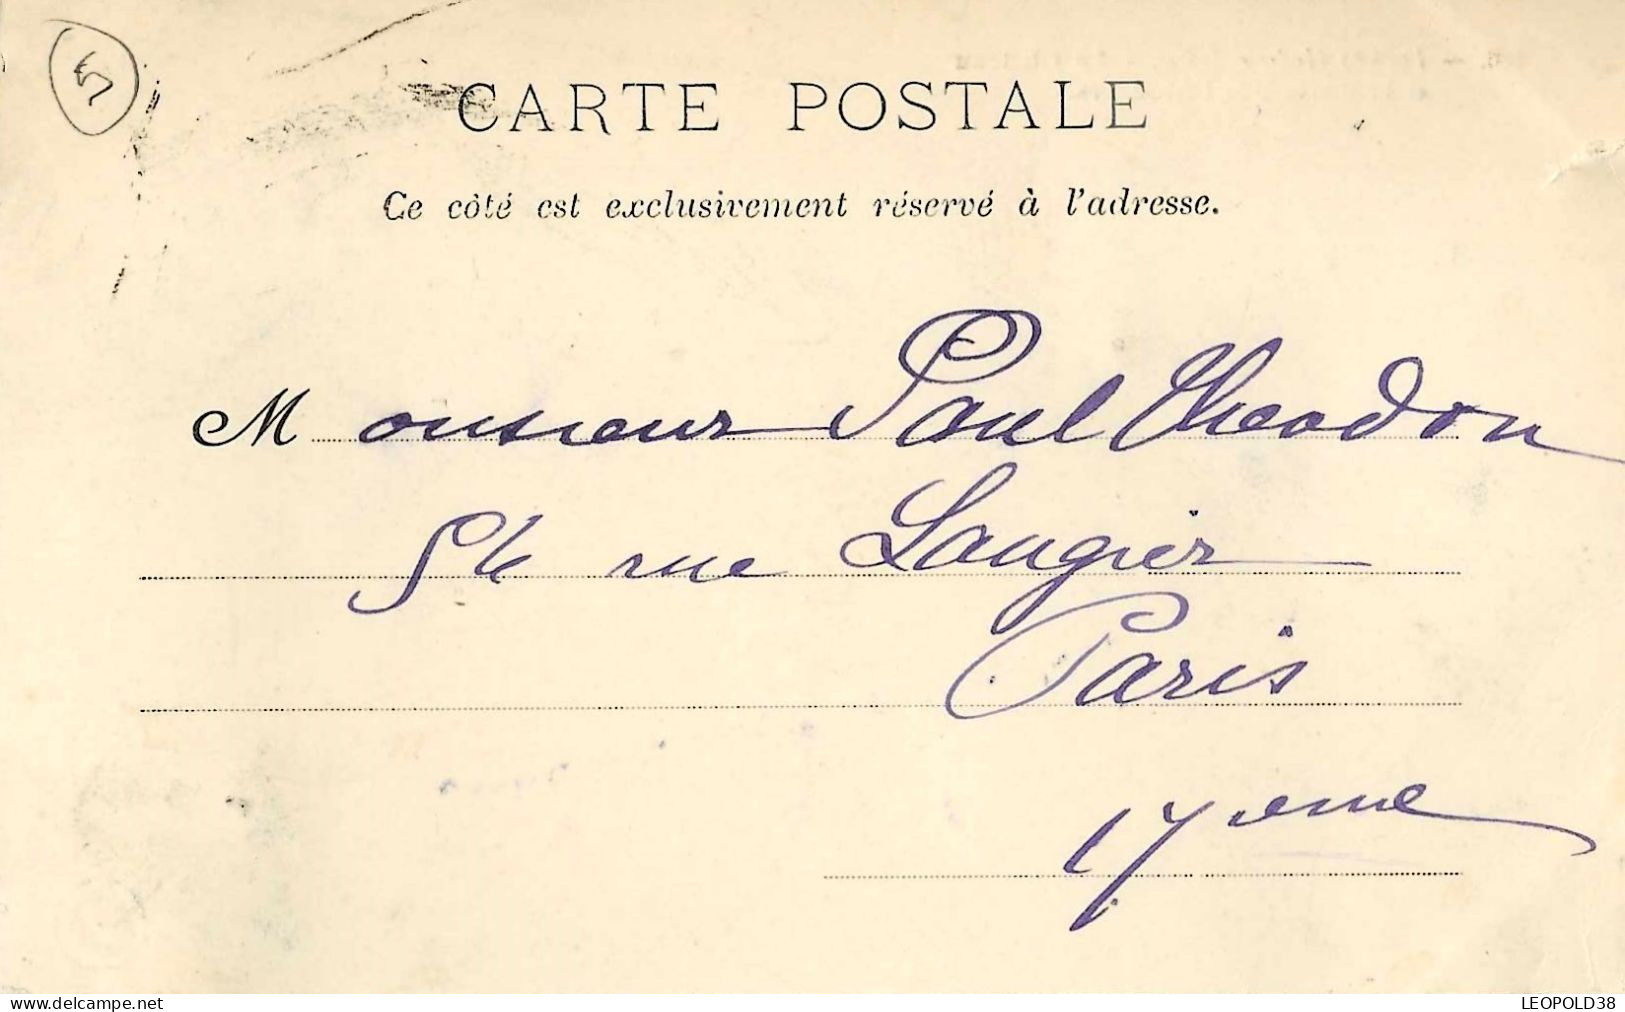 5
CARTE POSTALE
Ce côté est exclusivement réservé à l'adresse.
Monsieur Paul Theodon
54 rue Laugier
Paris
17eme
www.delcampe.net
LEOPOLD38